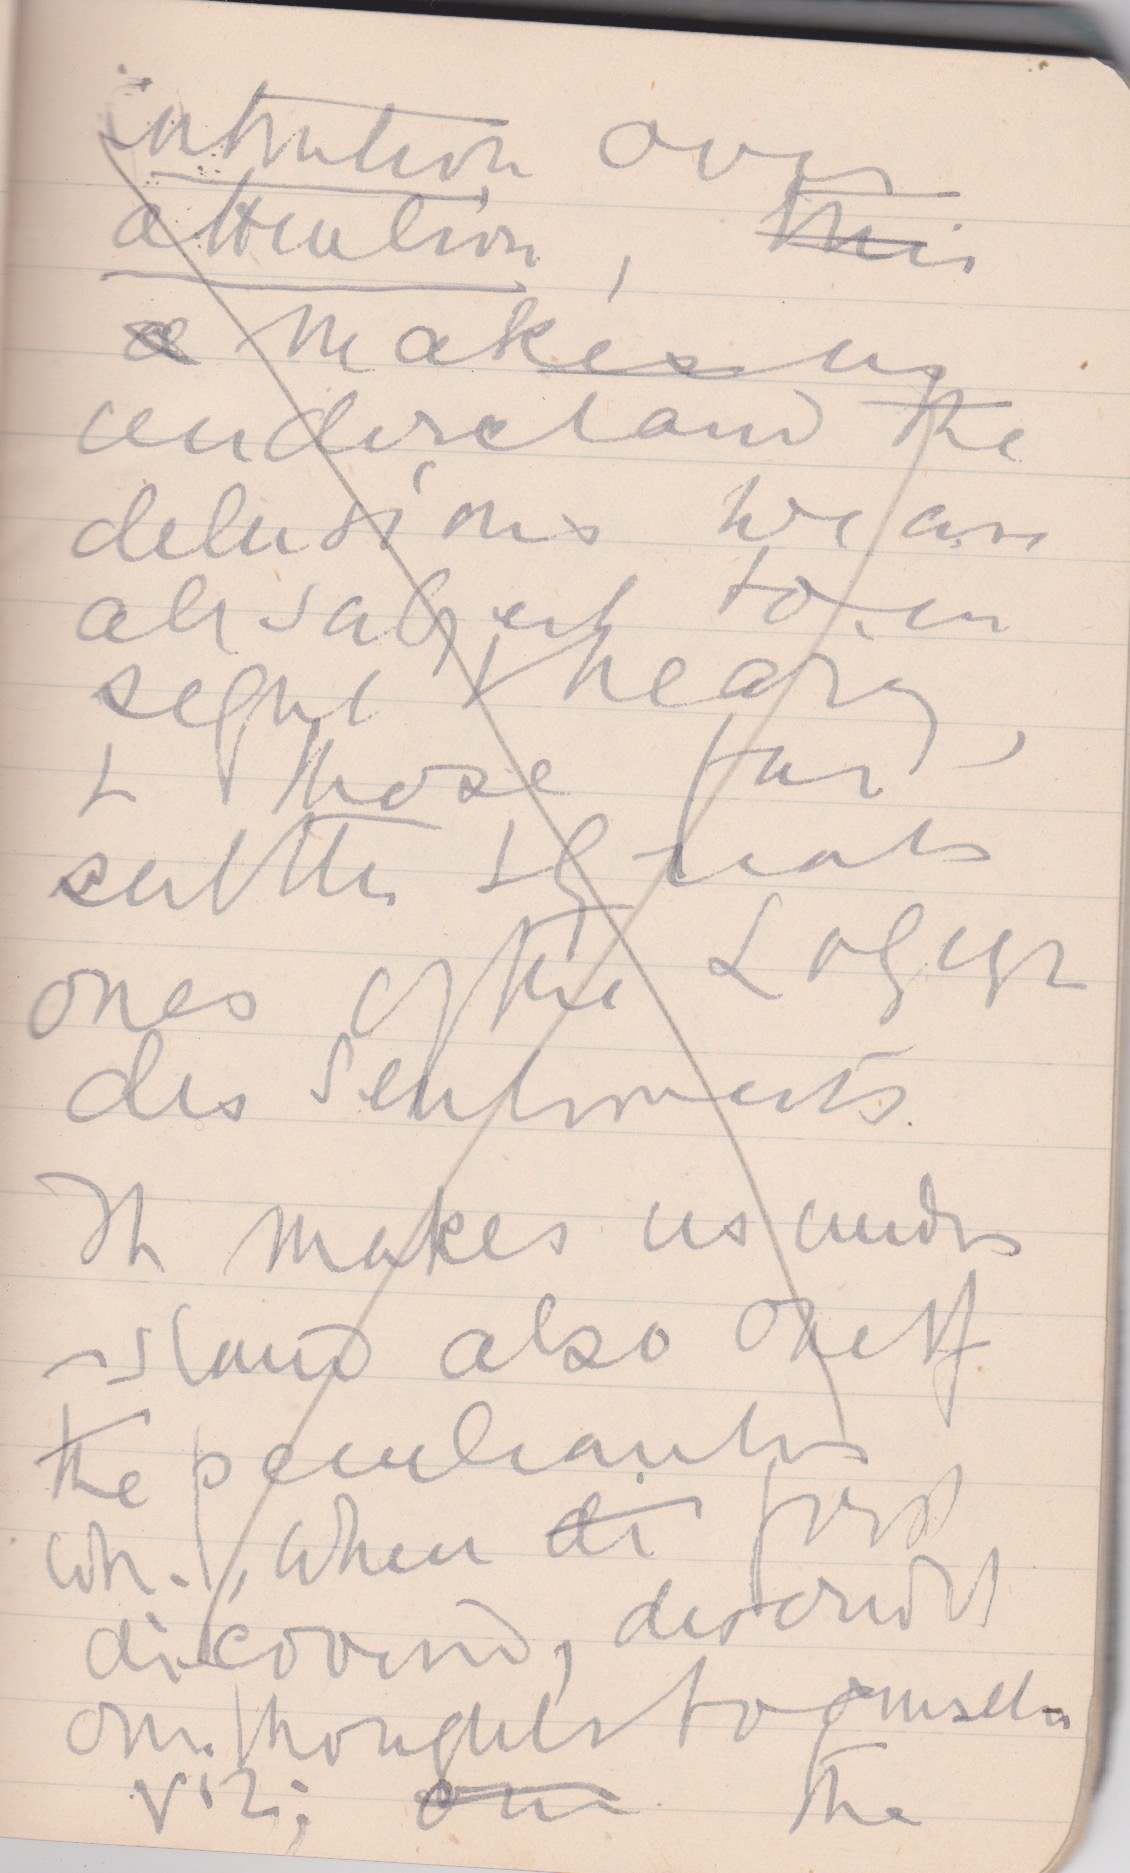 intention over
attention, this
a makes us
understand the
delusions we are
all subject to in
sight & hearing,
& those far
subtler & 
ones of the Logique
des Sentiments.
It makes us under
-stand also one of
the peculiarities
wh., when di first
discovered, discredits
our thoughts to ourselves
viz; our the